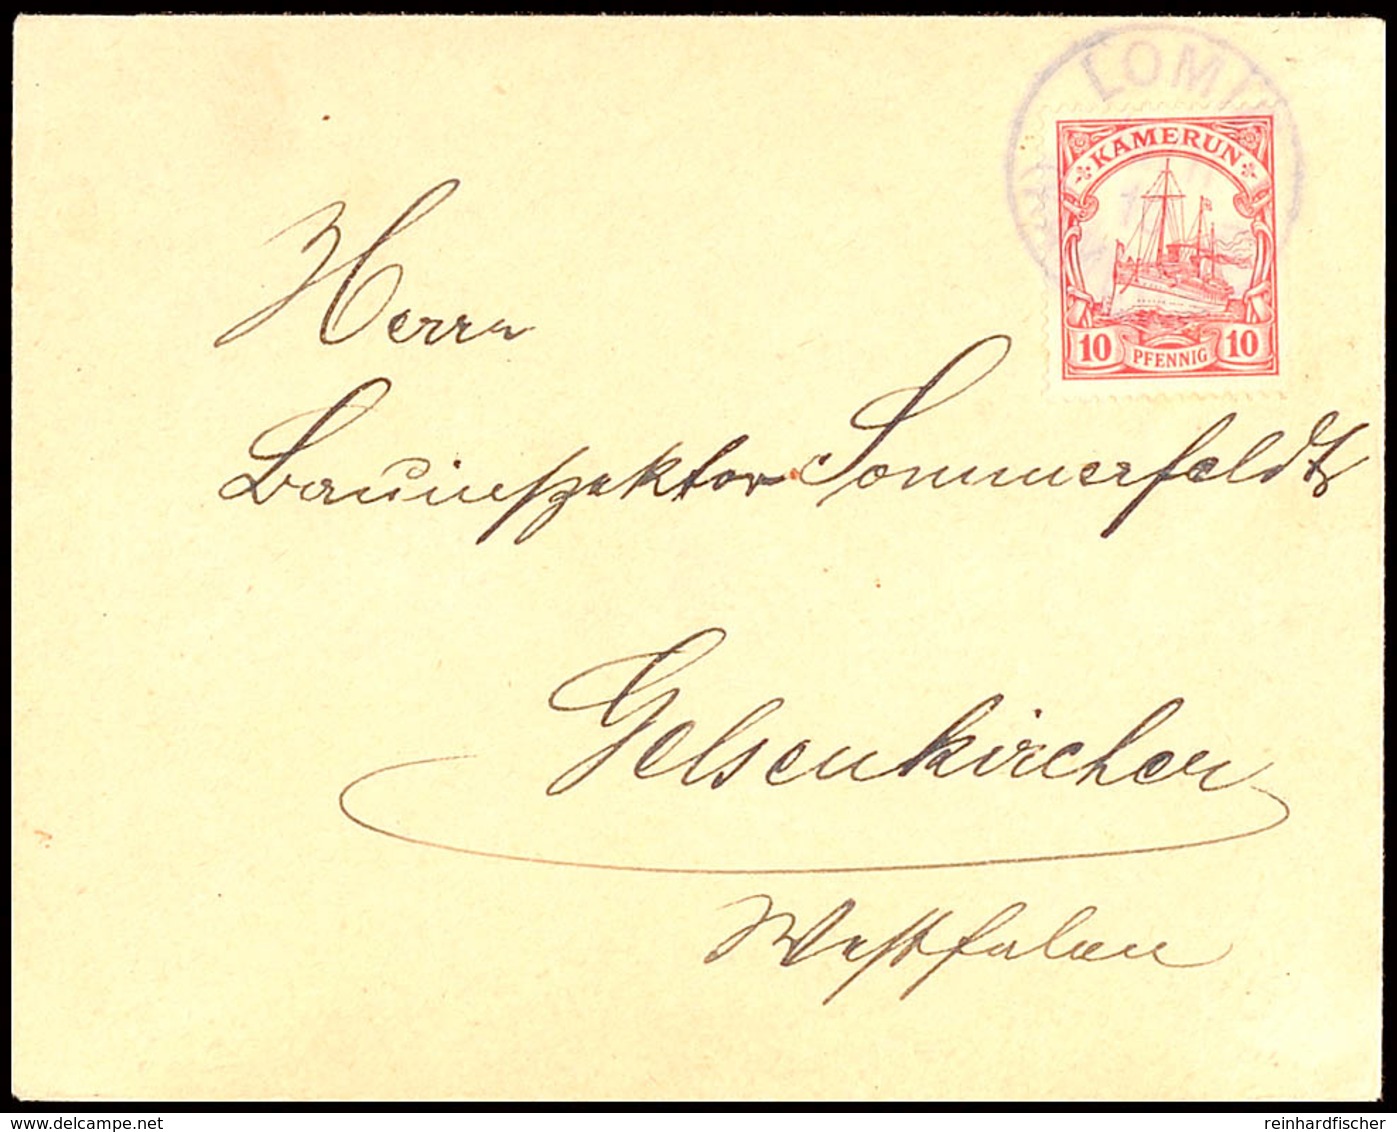 LOMI
KAMERUN
10 PFENNIG 10
Herrn
Bauinspektor Sommerfeldt
Gelsenkirchen
Westfalen
delcampe.net
reinhardfischer